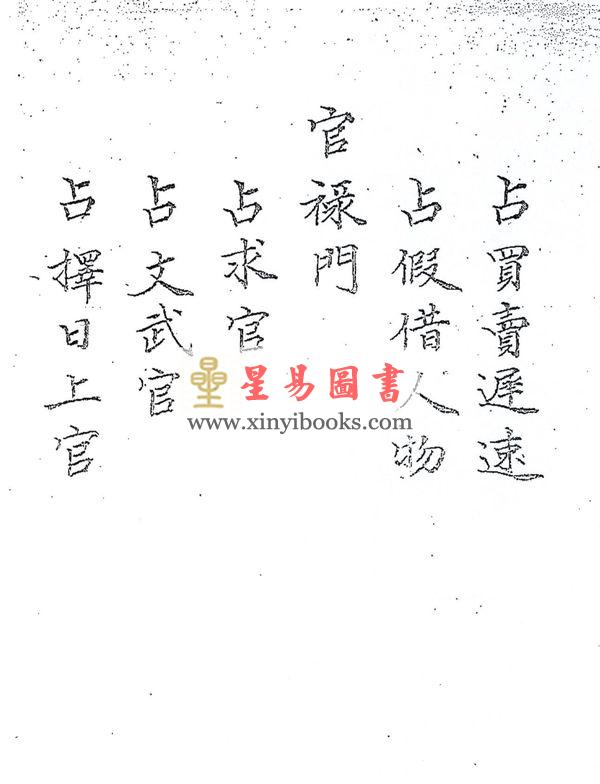 占買賣遲速
占假借人物
官祿門
占求官
占文武官
占擇日上官
星易圖書
www.xinyibooks.com